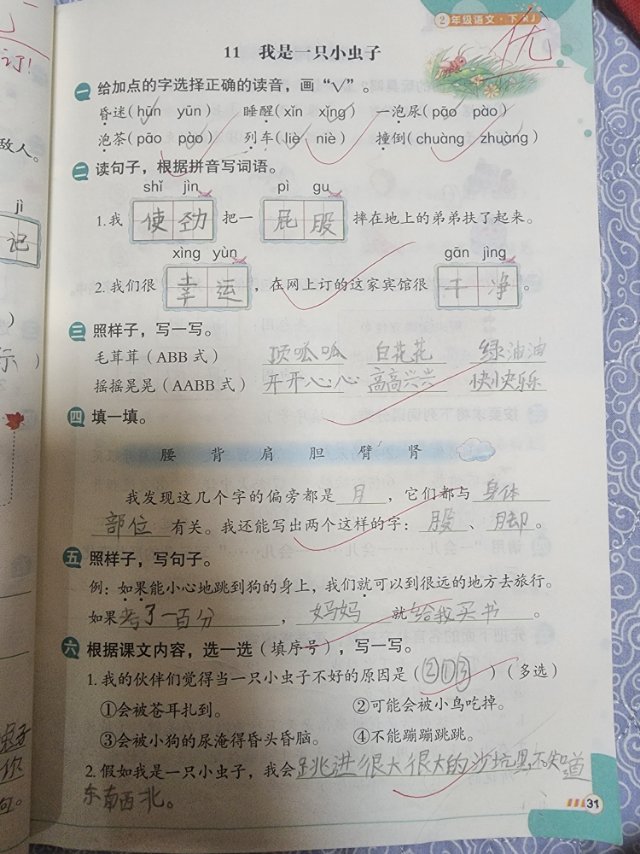 2年级语文·下 RJ
优
11 我是一只小虫子
一 给加点的字选择正确的读音，画“√”。
昏迷(hūn yūn) 睡醒(xǐn xǐng) 一泡尿(pāo pào)
泡茶(pāo pào) 列车(liè niè) 撞倒(chuàng zhuàng)
二 读句子，根据拼音写词语。
shǐ jìn pì gu
1.我 使劲 把一 屁股 摔在地上的弟弟扶了起来。
xìng yùn gān jìng
2.我们很 幸运 ，在网上订的这家宾馆很 干净 。
三 照样子，写一写。
毛茸茸(ABB式) 顶呱呱 白花花 绿油油
摇摇晃晃(AABB式) 开开心心 高高兴兴 快快乐乐
四 填一填。
腰 背 肩 胆 臂 肾
我发现这几个字的偏旁都是 月 ，它们都与 身体
部位 有关。我还能写出两个这样的字： 股 、 脚 。
五 照样子，写句子。
例：如果能小心地跳到狗的身上，我们就可以到很远的地方去旅行。
如果 考了一百分 ， 妈妈 就 给我买书 。
六 根据课文内容，选一选（填序号），写一写。
1.我的伙伴们觉得当一只小虫子不好的原因是(②①③)(多选)
①会被苍耳扎到。 ②可能会被小鸟吃掉。
③会被小狗的尿淹得昏头昏脑。 ④不能蹦蹦跳跳。
2.假如我是一只小虫子，我会 跳进很大很大的沙坑里,不知道
东南西北。
31
订!
敌人。
jì
记
示)
你